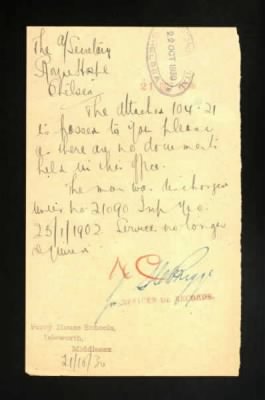 The A/Secretary
Royal Hosp
Chelsea
22 OCT 1936
The attached 104-21
is passed to you please
as there are no documents
held in this office.
The man was discharged
under no 21090 Imp Yeo
25/1/1902 Service no longer
required
OFFICER I/c RECORDS.
House Schools,
Isleworth,
Middlesex
21/10/36